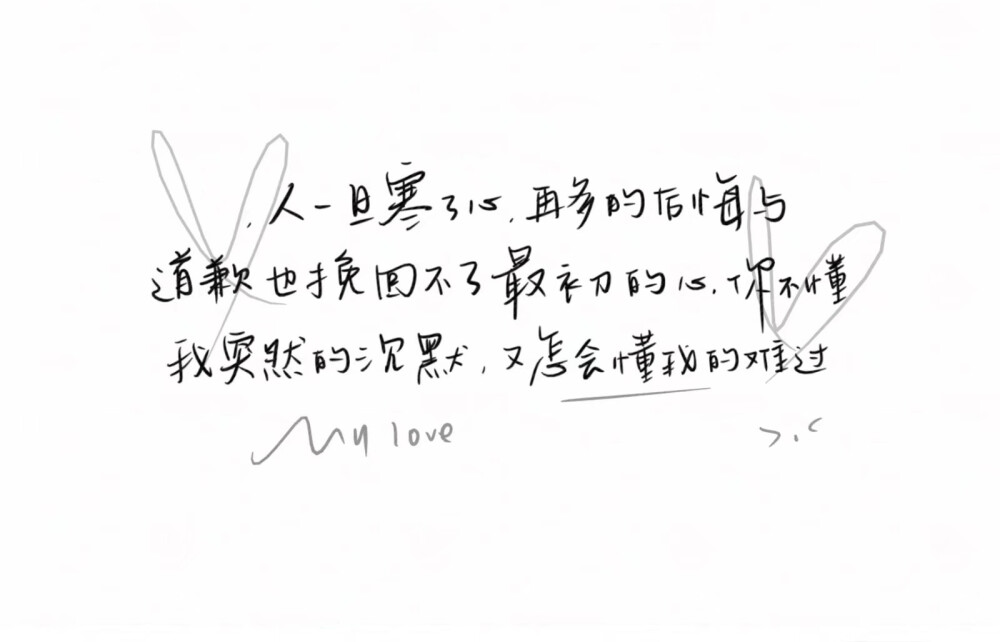 人一旦寒了心,再多的后悔与
道歉也挽回不了最初的心,你不懂
我突然的沉默,又怎会懂我的难过
My love